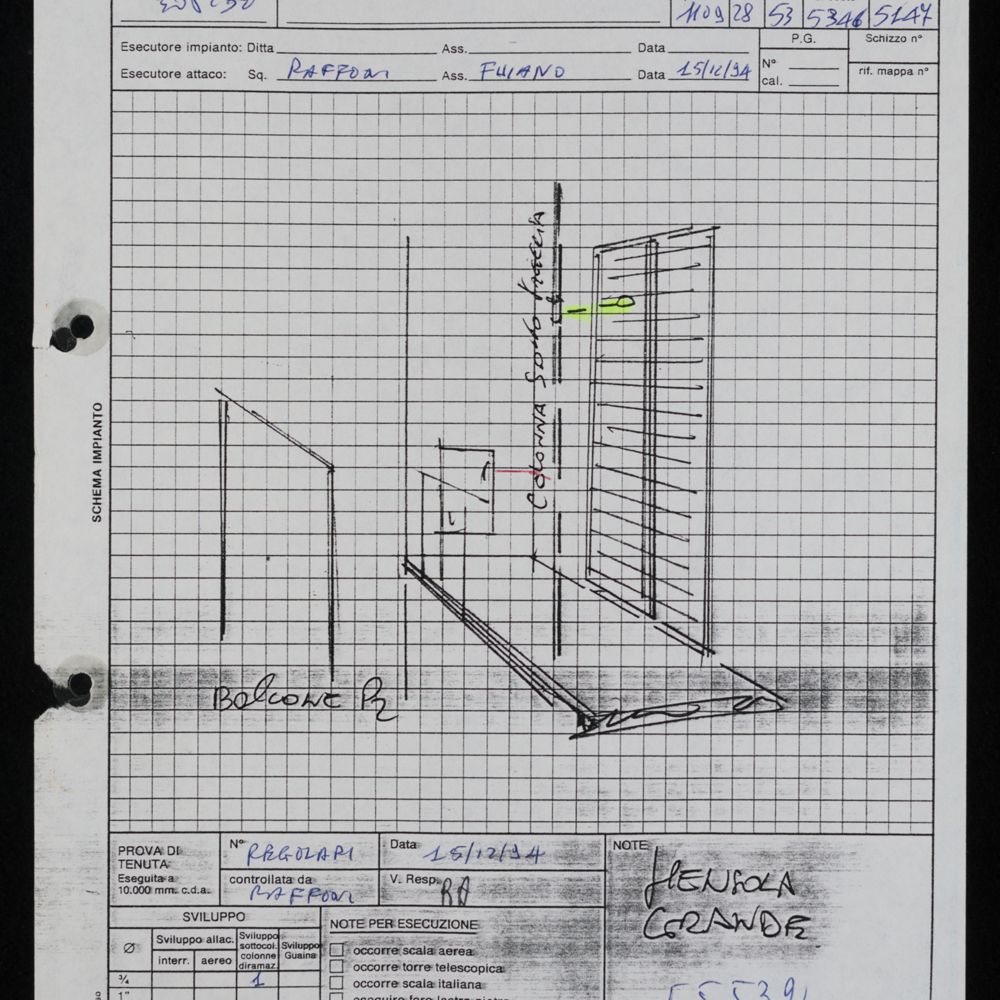 1109 28 53 5346 5147
Esecutore impianto: Ditta Ass. Data
P.G.
Schizzo n°
Esecutore attacco: Sq. RAFFONI Ass. FUIANO Data 15/12/94
N°
cal.
rif. mappa n°
SCHEMA IMPIANTO
COLONNA SOTTO TRACCIA
BALCONE P2
PROVA DI TENUTA
Eseguita a 10.000 mm. c.d.a.
N° REGOLARI
Data 15/12/94
controllata da RAFFONI
V. Resp. RA
NOTE
MENSOLA
GRANDE
SVILUPPO
Ø
Sviluppo allac.
interr. aereo
Sviluppo sottocol. colonne diramaz.
Sviluppo Guaina
3/4 1
1"
NOTE PER ESECUZIONE
occorre scala aerea
occorre torre telescopica
occorre scala italiana